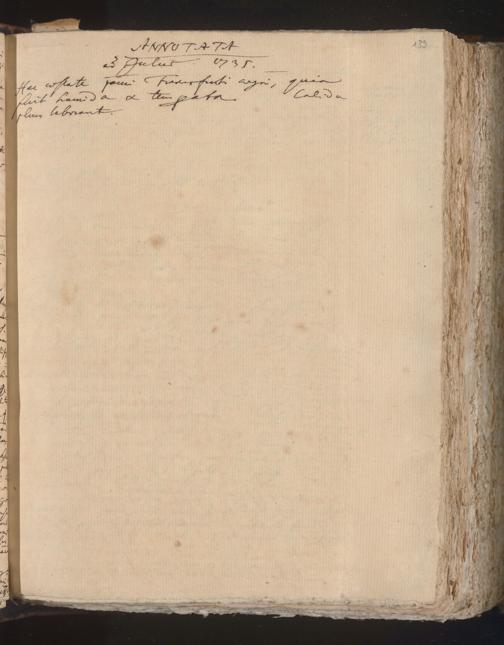 ANNOTATA
23 Julii 1735.
Hac æstate pauci transfusi ægri, quia
fuit humida & temperata. Calida
plus laborant.
139